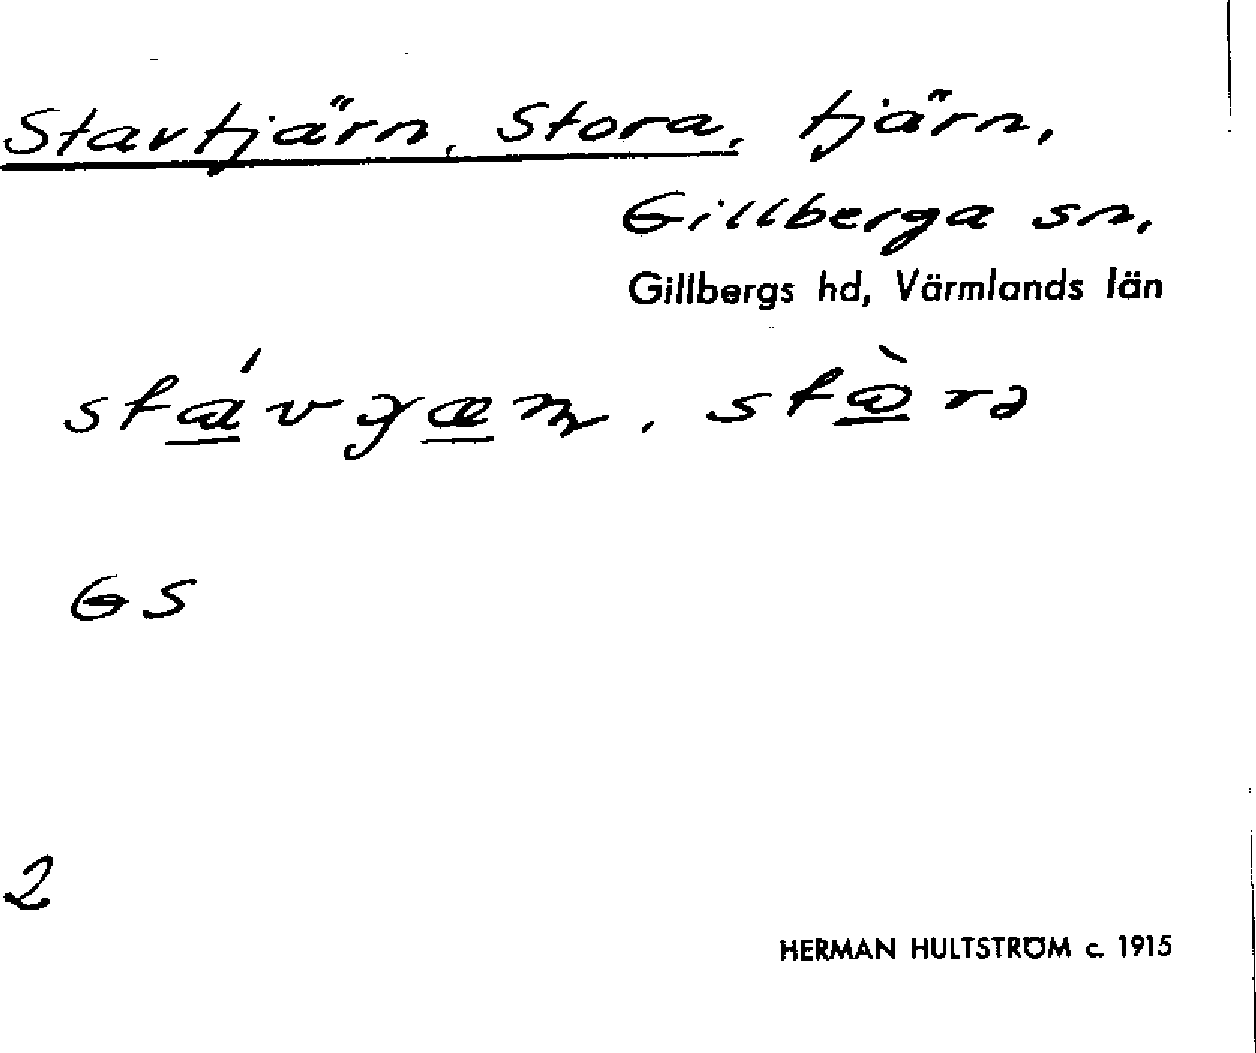 Stavtjärn, Stora, tjärn,
Gillberga sn.
Gillbergs hd, Värmlands län
GS
2
HERMAN HULTSTRÖM c. 1915